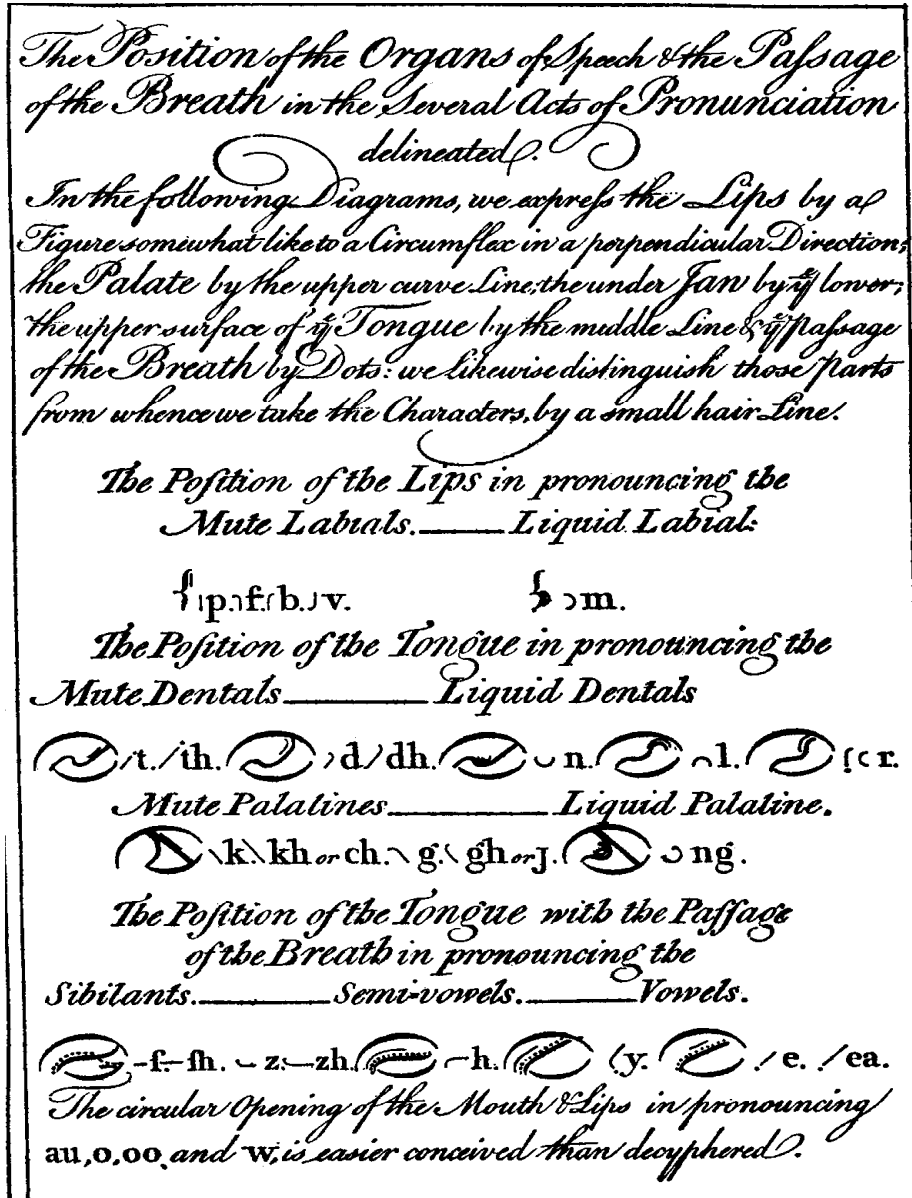 The Position of the Organs of Speech & the Paſsage
of the Breath in the Several Acts of Pronunciation
delineated.
In the following Diagrams, we expreſs the Lips by a
Figure somewhat like to a Circumflex in a perpendicular Direction;
the Palate by the upper curve Line; the under Jaw by yͤ lower;
the upper surface of yͤ Tongue by the middle Line & yͤ paſsage
of the Breath by Dots: we likewise distinguish those Parts
from whence we take the Characters, by a small hair Line.
The Poſition of the Lips in pronouncing the
Mute Labials. Liquid Labial:
p. f. b. v. m.
The Poſition of the Tongue in pronouncing the
Mute Dentals Liquid Dentals
t. th. d dh. n. l. r.
Mute Palatines Liquid Palatine.
k. kh or ch. g. gh or J. ng.
The Poſition of the Tongue with the Paſſage
of the Breath in pronouncing the
Sibilants. Semi-vowels. Vowels.
ſ. ſh. z. zh. h. y. e. ea.
The circular Opening of the Mouth & Lips in pronouncing
au, o, oo, and w, is easier conceived than decyphered.